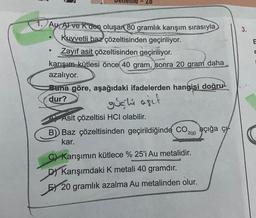 1. Au, Al ve K'den oluşan 80 gramlık karışım sırasıyla
3.
• Kuvvetli baz çözeltisinden geçiriliyor.
• Zayıf asit çözeltisinden geçiriliyor.
karışım kütlesi önce 40 gram, sonra 20 gram daha
azalıyor.
Buna göre, aşağıdaki ifadelerden hangisi doğru-
dur?
güçlü asit
A) Asit çözeltisi HCl olabilir.
B) Baz çözeltisinden geçirildiğinde CO2(g) açığa çı-
kar.
C) Karışımın kütlece % 25'i Au metalidir.
D) Karışımdaki K metali 40 gramdır.
E) 20 gramlık azalma Au metalinden olur.